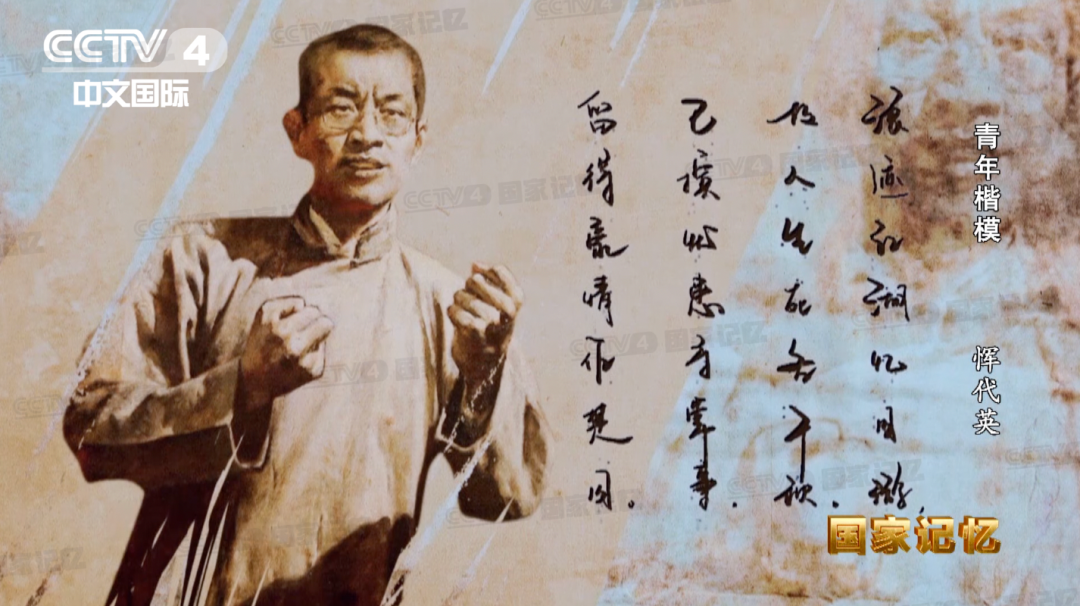 CCTV 4
中文国际
青年楷模 恽代英
浪迹江湖忆旧游，
故人生死各千秋。
已摈忧患寻常事，
留得豪情作楚囚。
国家记忆